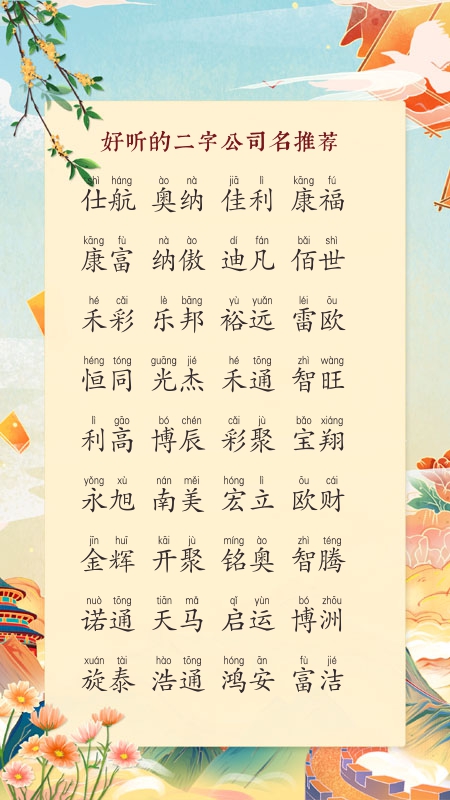 好听的二字公司名推荐
shì háng ào nà jiā lì kāng fú
仕航 奥纳 佳利 康福
kāng fù nà ào dí fán bǎi shì
康富 纳傲 迪凡 佰世
hé cǎi lè bāng yù yuǎn léi ōu
禾彩 乐邦 裕远 雷欧
héng tóng guāng jié hé tōng zhì wàng
恒同 光杰 禾通 智旺
lì gāo bó chén cǎi jù bǎo xiáng
利高 博辰 彩聚 宝翔
yǒng xù nán měi hóng lì ōu cái
永旭 南美 宏立 欧财
jīn huī kāi jù míng ào zhì téng
金辉 开聚 铭奥 智腾
nuò tōng tiān mǎ qǐ yùn bó zhōu
诺通 天马 启运 博洲
xuán tài hào tōng hóng ān fù jié
旋泰 浩通 鸿安 富洁